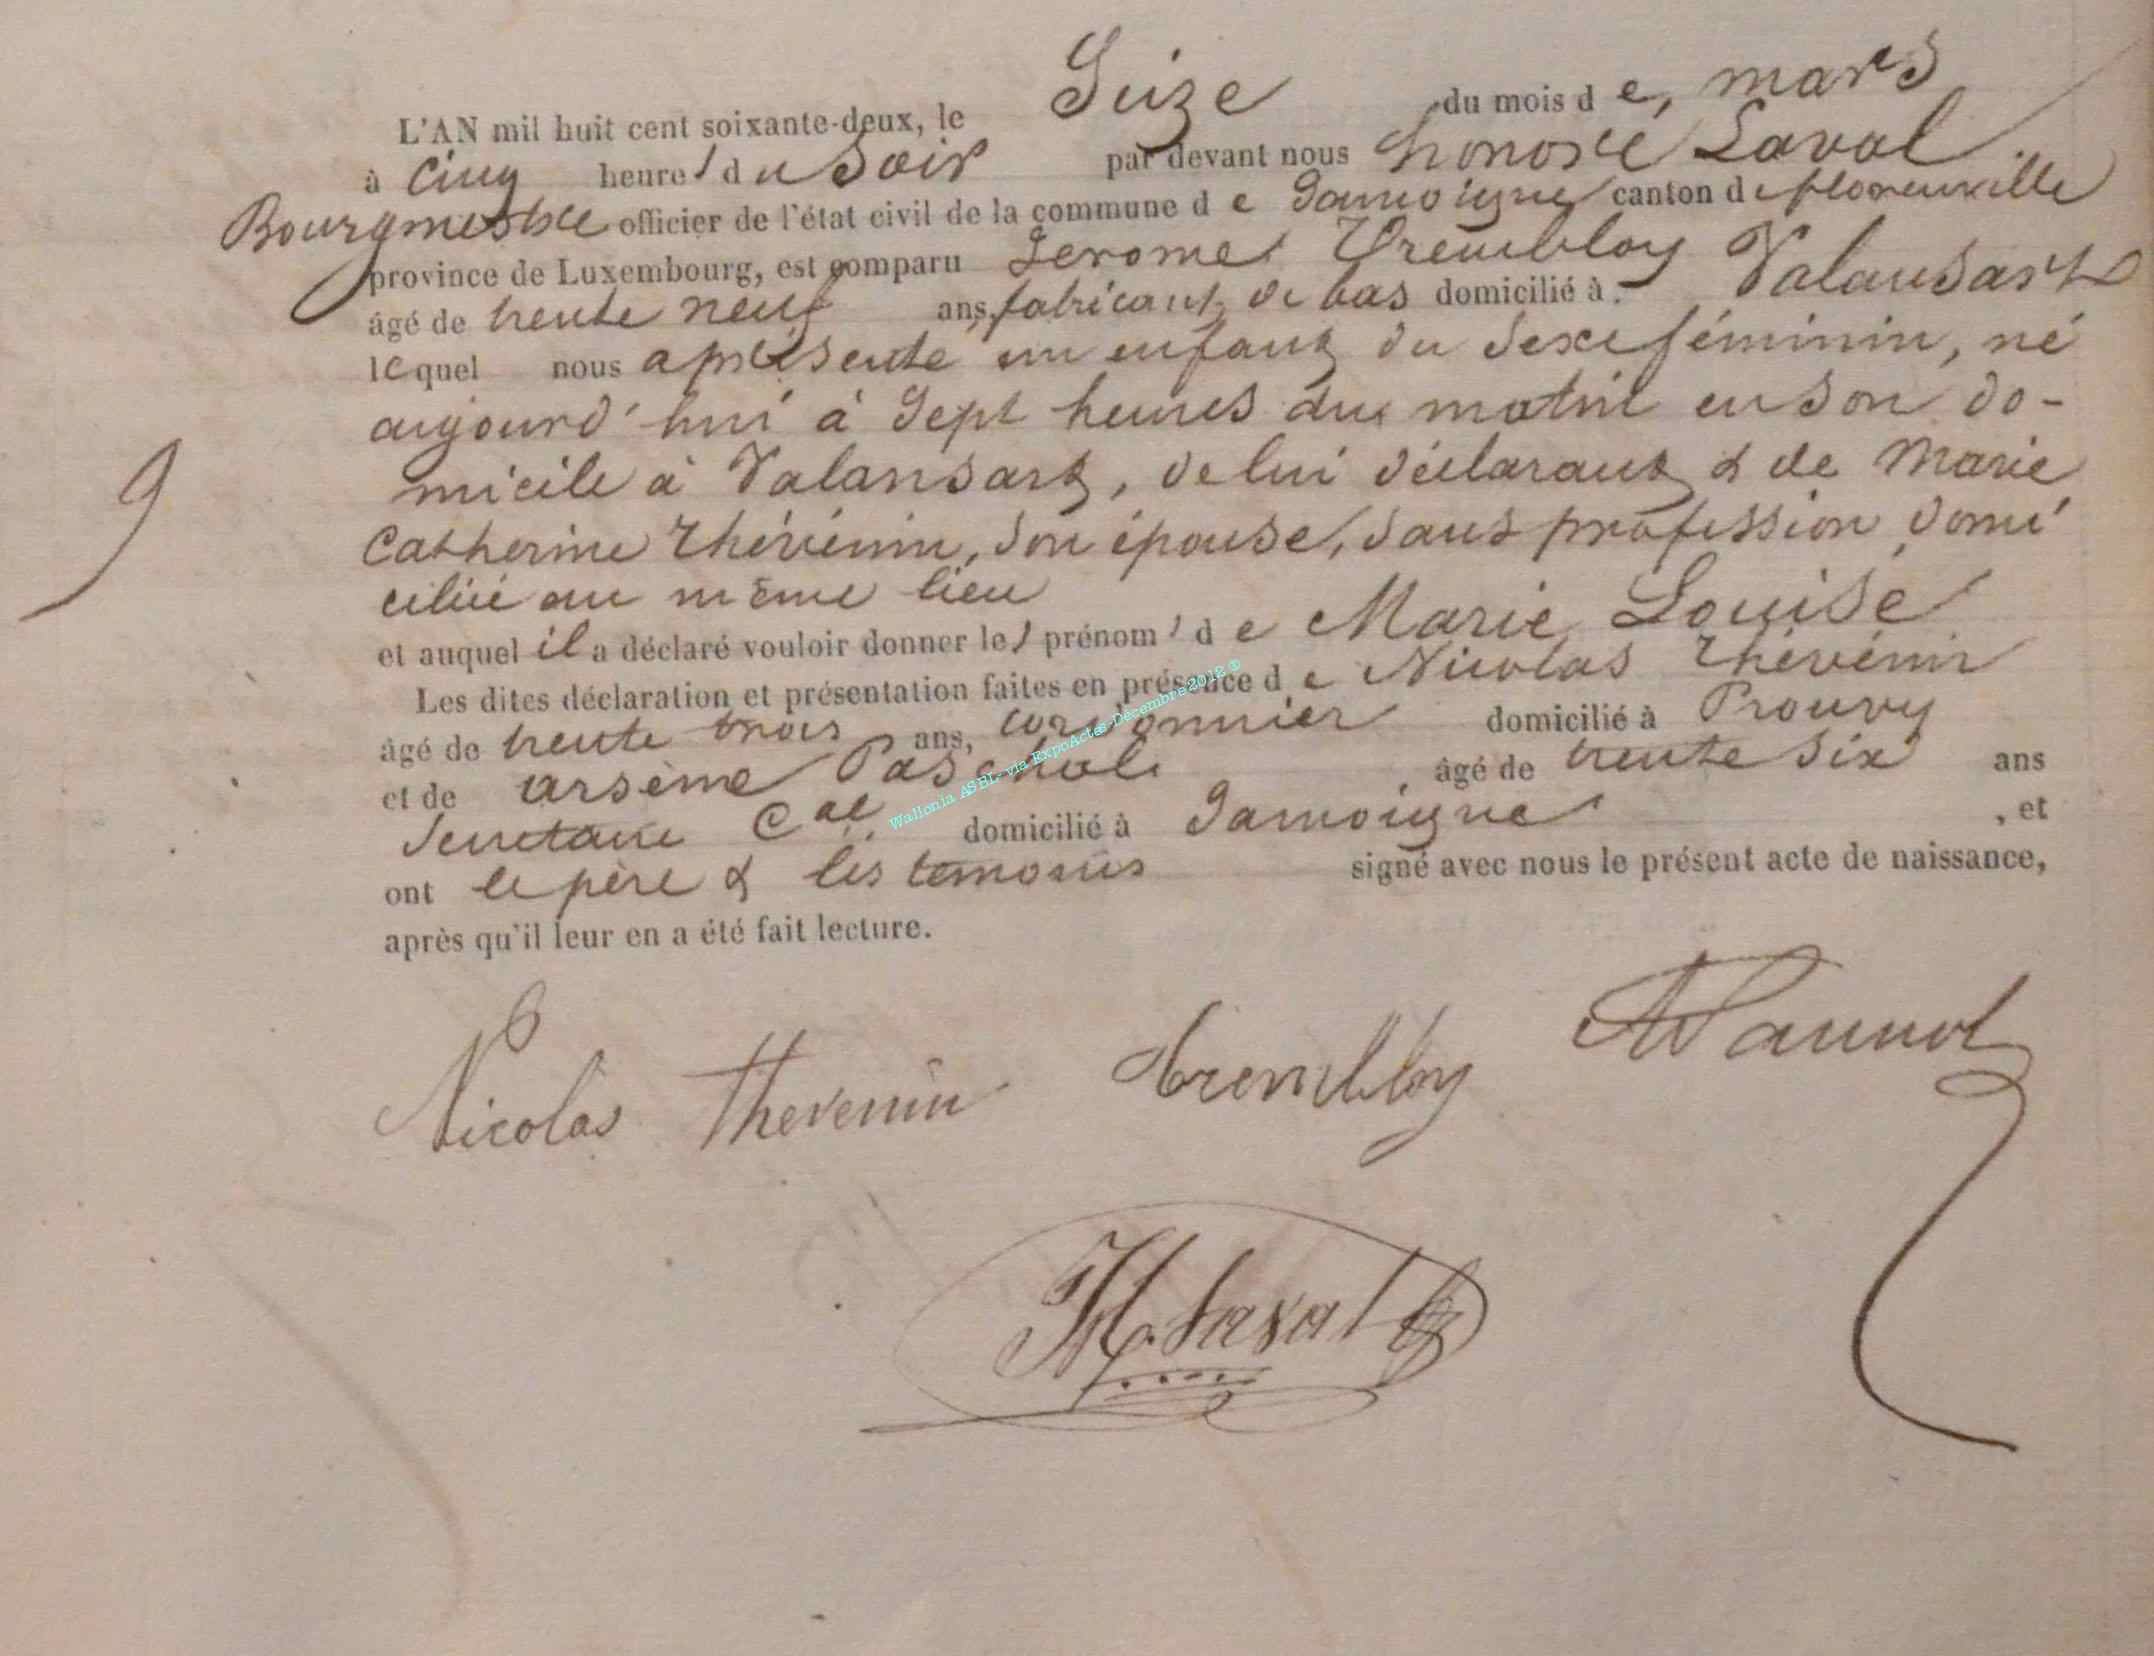 L'AN mil huit cent soixante-deux, le Seize du mois de, mars
à Cinq heures du Soir par devant nous honoré Laval
Bourgmestre officier de l'état civil de la commune de Jamoigne canton de florenville
province de Luxembourg, est comparu Jerome Trembloy
âgé de trente neuf ans, fabricant de bas domicilié à Valansart
lequel nous a présenté un enfant du sexe féminin, né
aujourd'hui à Sept heures du matin en son do-
micile à Valansart, de lui déclarant & de Marie
Catherine Thévénin, son épouse, sans profession domi
ciliée au même lieu
et auquel il a déclaré vouloir donner les prénoms de Marie Louise
Les dites déclaration et présentation faites en présence de Nicolas Thévénin
âgé de trente trois ans, cordonnier domicilié à Prouvy
et de arsème âgé de trente six ans
Secretaire Cal. domicilié à Jamoigne, et
ont le père & les témoins signé avec nous le présent acte de naissance,
après qu'il leur en a été fait lecture.
9
Nicolas Thevenin Trembloy
H. Laval
Wallonia ASBL via ExpoActes-Décembre2012®